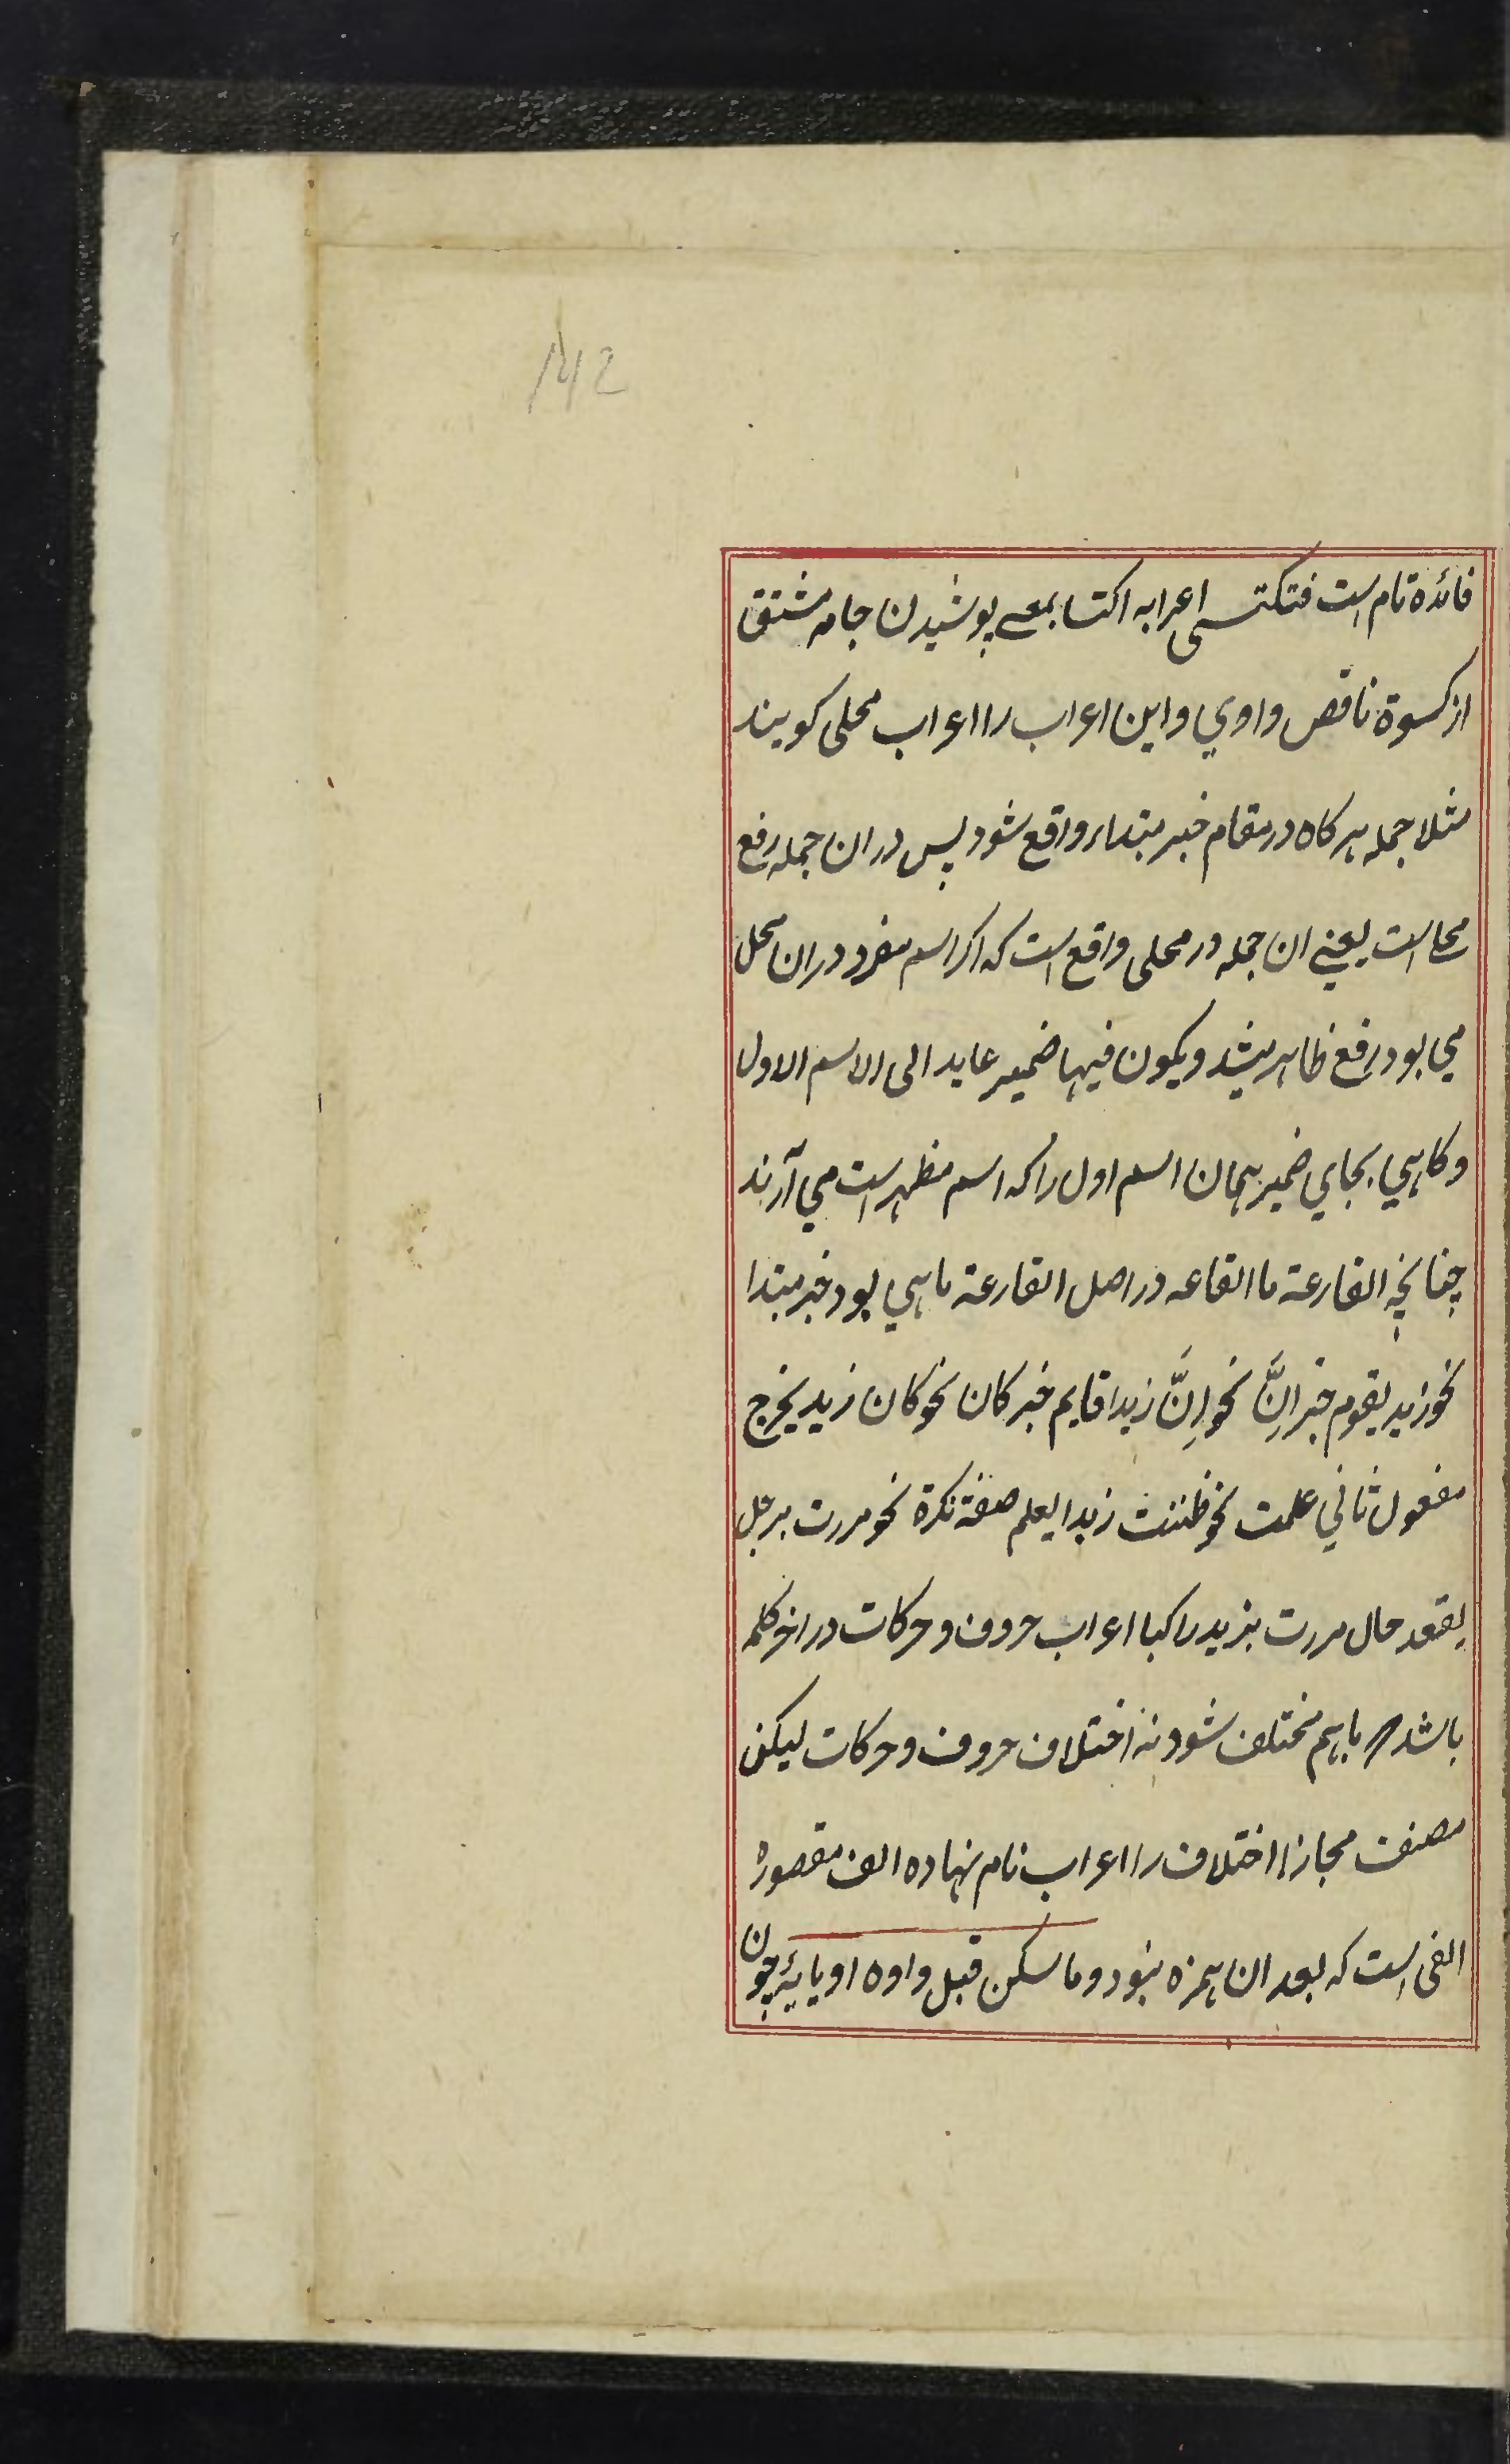 142
فائده تام است فتكتسى اعرابه اكتسا بمعے پوشيدن جامه مشتق
از كسوة ناقص واوي واين اعراب را اعراب محلى كويند
مثلا جمله هركاه در مقام خبر مبتداء واقع شود پس دران جمله رفع
محلا است يعنے ان جمله در محلى واقع است كه اكر اسم مفرد دران محل
مي بود رفع ظاهر ميشد ويكون فيها ضمير عايد الى الاسم الاول
وكاهي بجاي ضمير همان اسم اول را كه اسم مظهر است مي آرند
چنانچه القارعة ما القاعه در اصل القارعة ما هي بود خبر مبتدا
نحو زيد يقوم خبر اِنَّ نحو اِنَّ زيدا قايم خبر كان نحو كان زيد يخرج
مفعول ثاني علمت نحو ظننت زيدا يعلم صفة نكرة نحو مررت برجل
يقعد حال مررت بزيد راكبا اعراب حروف وحركات در اخر كلمه
باشد باهم مختلف شود نه اختلاف حروف وحركات ليكن
مصنف مجازا اختلاف را اعراب نام نهاده الف مقصوره
الفى است كه بعد ان همزه نبود وما سكن قبل واوه او يايۀ چون